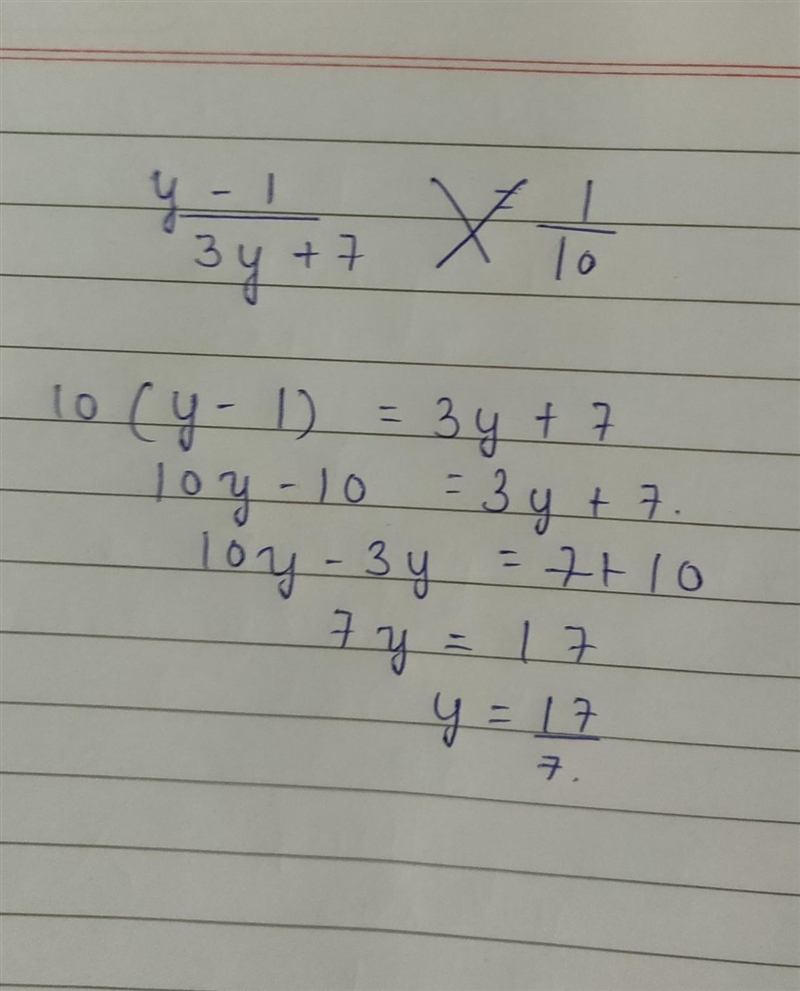 y - 1 = 1
3y + 7 10
10 (y - 1) = 3y + 7
10y - 10 = 3y + 7.
10y - 3y = 7 + 10
7y = 17
y = 17
7.